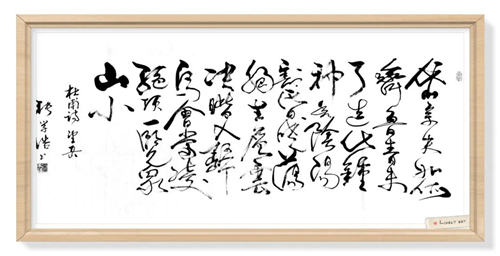 岱宗夫如何
齊魯青未
了造化鍾
神秀陰陽
割昏曉蕩
胸生層雲
決眥入歸
鳥會當凌
絕頂一覽眾
山小
杜甫詩望岳